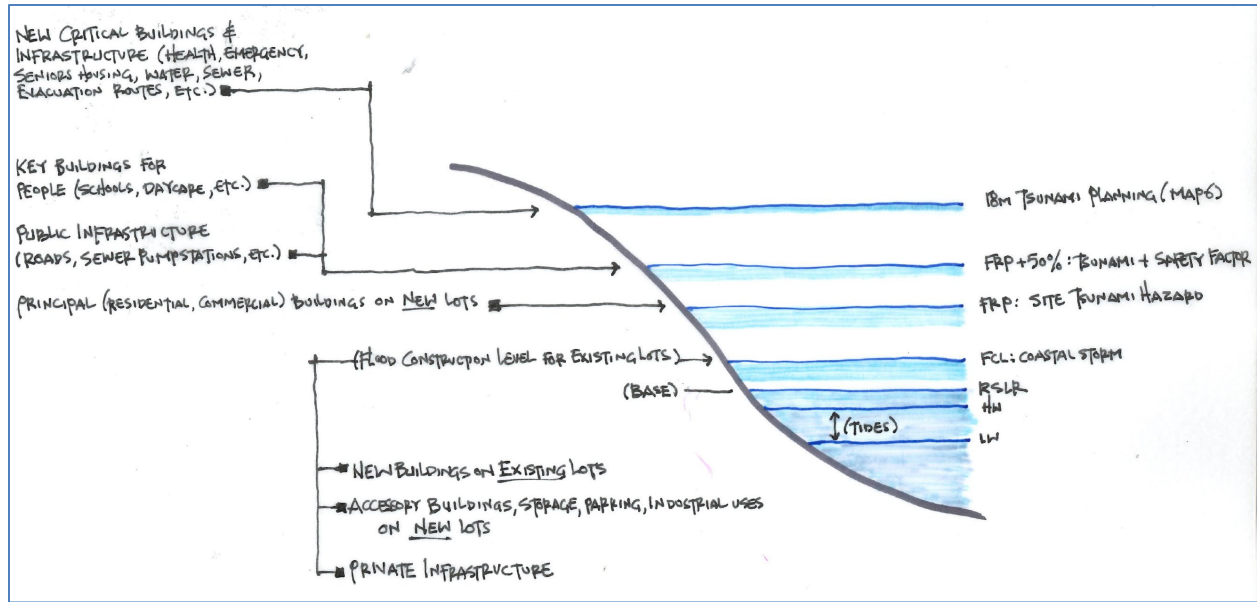 NEW CRITICAL BUILDINGS &
INFRASTRUCTURE (HEALTH, EMERGENCY,
SENIORS HOUSING, WATER, SEWER,
EVACUATION ROUTES, ETC.)
KEY BUILDINGS FOR
PEOPLE (SCHOOLS, DAYCARE, ETC.)
PUBLIC INFRASTRUCTURE
(ROADS, SEWER PUMPSTATIONS, ETC.)
PRINCIPAL (RESIDENTIAL, COMMERCIAL) BUILDINGS ON NEW LOTS
(FLOOD CONSTRUCTION LEVEL FOR EXISTING LOTS)
(BASE)
NEW BUILDINGS ON EXISTING LOTS
ACCESSORY BUILDINGS, STORAGE, PARKING, INDUSTRIAL USES
ON NEW LOTS
PRIVATE INFRASTRUCTURE
18M TSUNAMI PLANNING (MAP6)
FRP + 50% : TSUNAMI + SAFETY FACTOR
FRP : SITE TSUNAMI HAZARD
FCL : COASTAL STORM
RSLR
HW
(TIDES)
LW